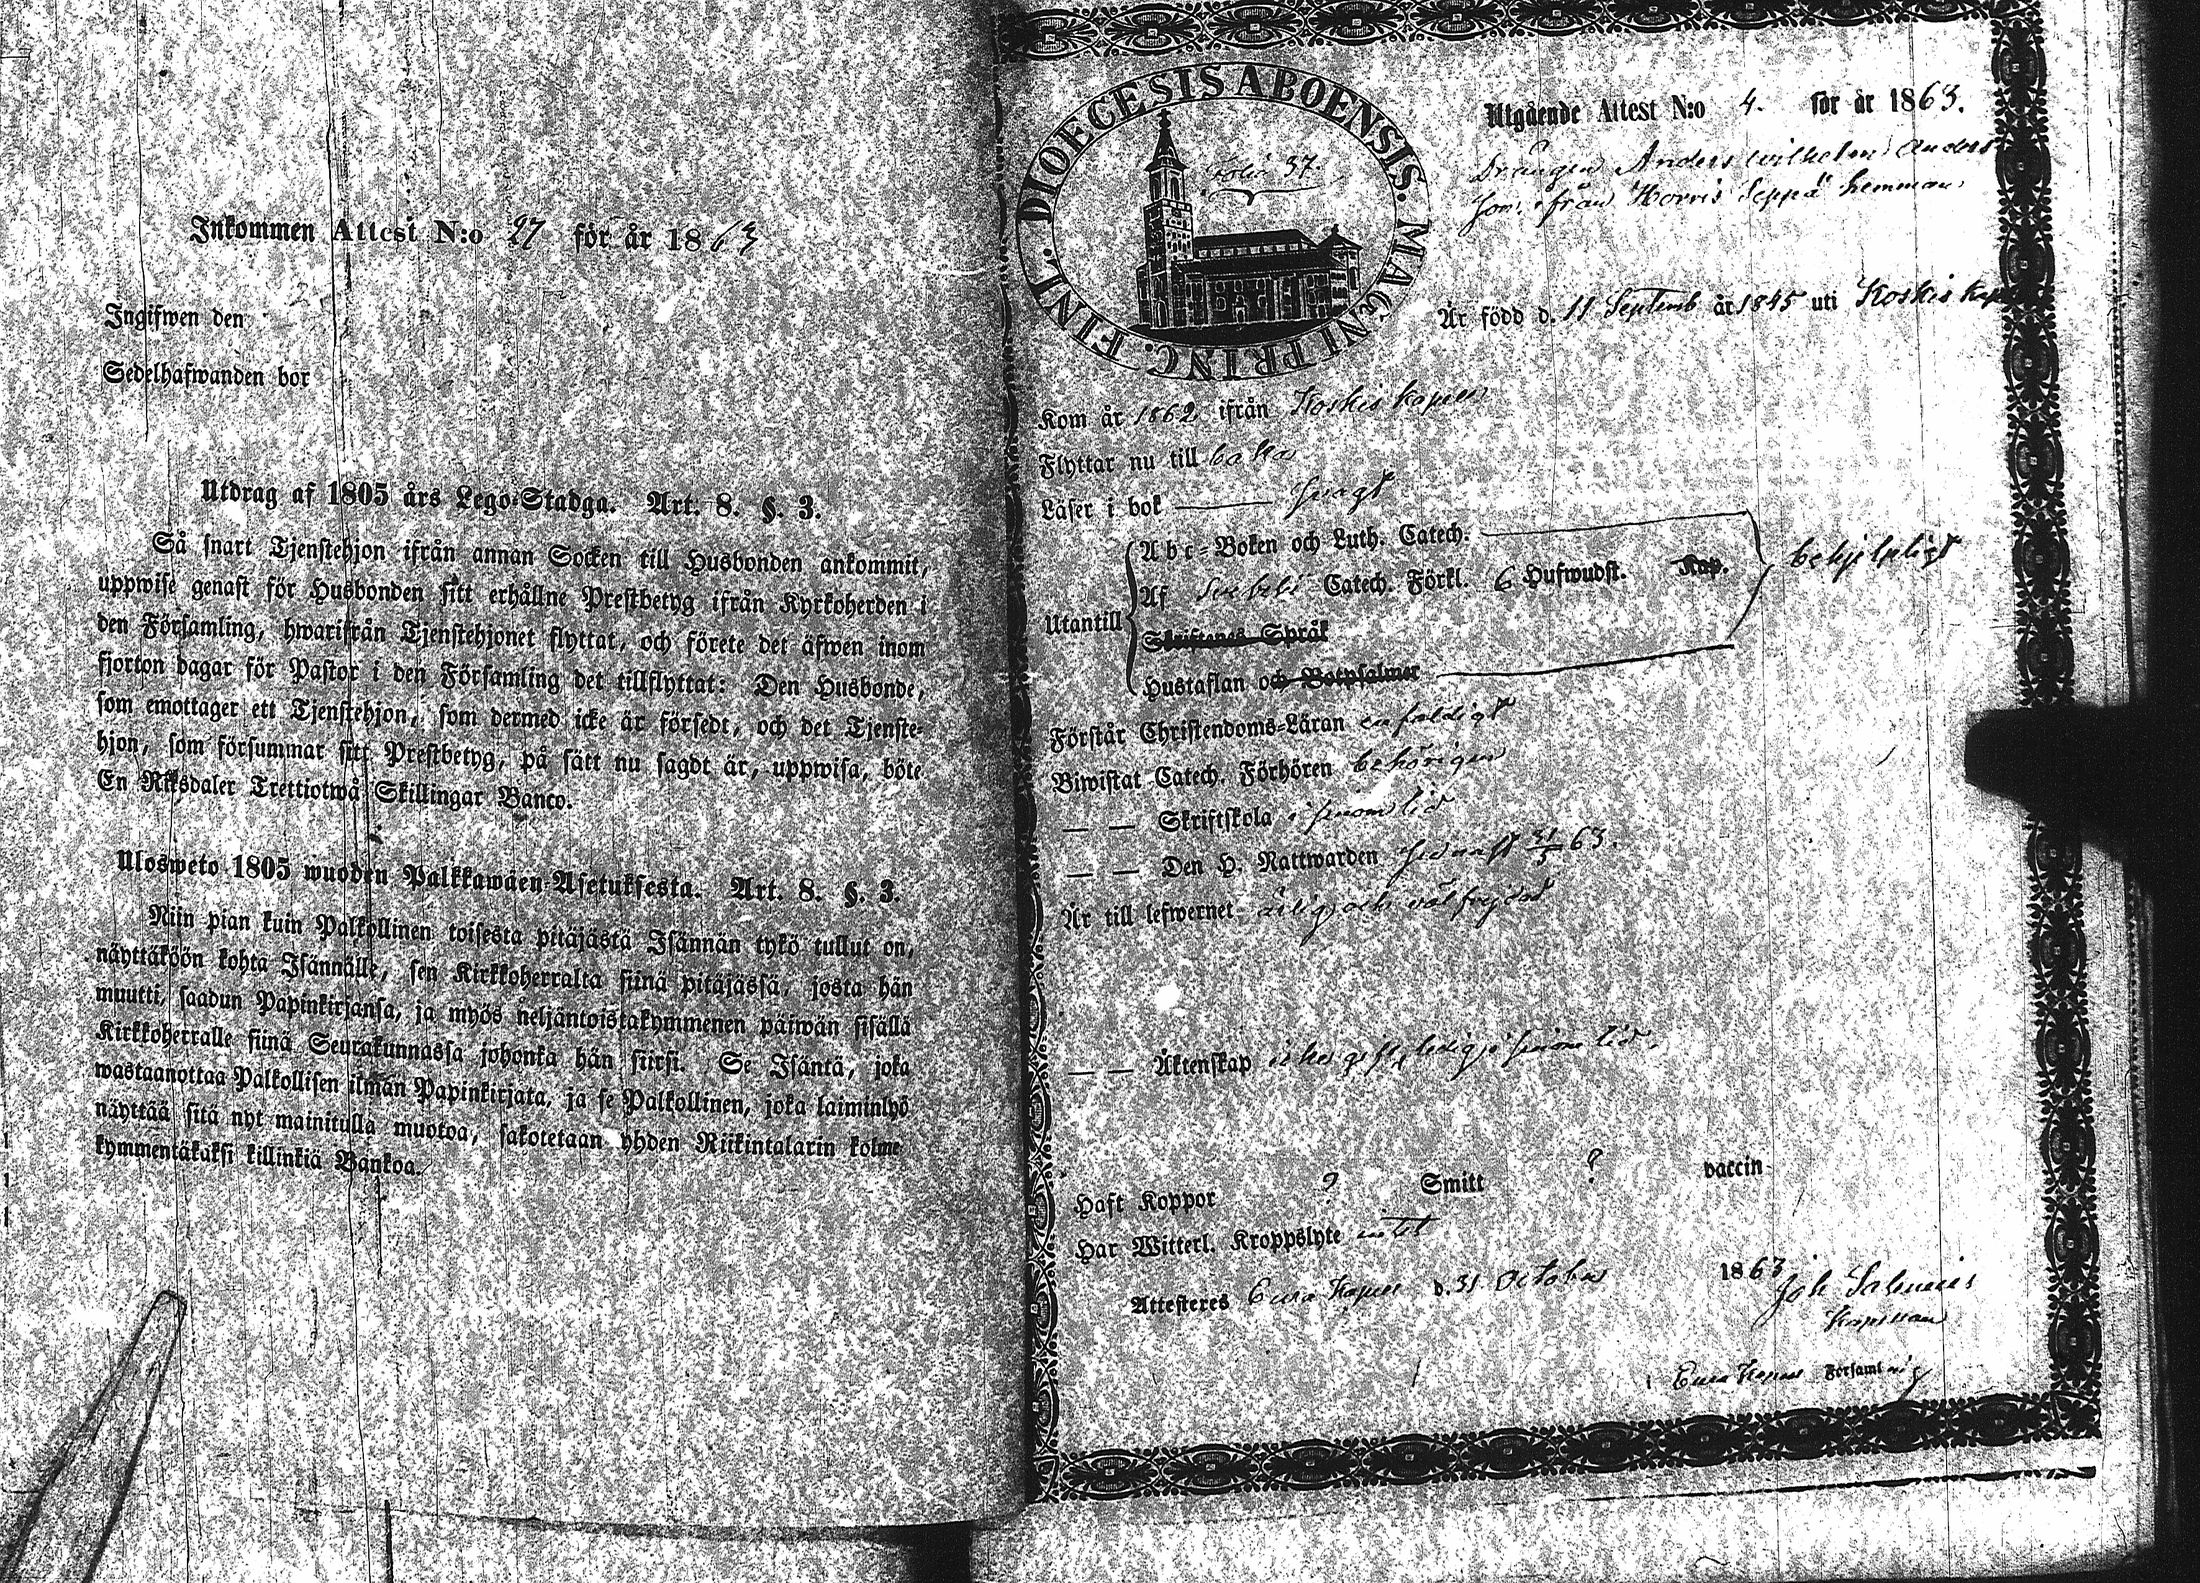 Inkommen Attest N:o 27 för år 1863
Ingifwen den
Sedelhafwanden bor
Utdrag af 1805 års Lego-Stadga. Art. 8. §. 3.
Så snart Tjenstehjon ifrån annan Socken till Husbonden ankommit,
uppwise genast för Husbonden sitt erhållne Prestbetyg ifrån Kyrkoherden i
den Församling, hwarifrån Tjenstehjonet flyttat, och förete det äfwen inom
fjorton dagar för Pastor i den Församling det tillflyttat: Den Husbonde,
som emottager ett Tjenstehjon, som dermed icke är försedt, och det Tjenste-
hjon, som försummar sitt Prestbetyg, på sätt nu sagdt är, uppwisa, böte
En Riksdaler Trettiotwå Skillingar Banco.
Ulosweto 1805 wuoden Palkkawäen-Asetuksesta. Art. 8. §. 3.
Niin pian kuin Palkollinen toisesta pitäjästä Isännän tykö tullut on,
näyttäköön kohta Isännälle, sen Kirkkoherralta siinä pitäjässä, josta hän
muutti, saadun Papinkirjansa, ja myös neljäntoistakymmenen päiwän sisällä
Kirkkoherralle siinä Seurakunnassa johonka hän siirsi. Se Isäntä, joka
wastaanottaa Palkollisen ilman Papinkirjata, ja se Palkollinen, joka laiminlyö
näyttää sitä nyt mainitulla muotoa, sakotetaan yhden Riikintalarin kolme
kymmentäkaksi killinkiä Bankoa.
DIOECESIS ABOENSIS. MAGNI PRINC. FINL.
Folio 37.
Utgående Attest N:o 4. för år 1863.
Drängen Anders Wilhelm Anders
son ifrån Horris Seppä hemman
Är född d. 11 Septemb år 1845 uti Koskis kap
Kom år 1862 ifrån Koskis kapell
Flyttar nu till baka
Läser i bok svagt
Utantill
Abc-Boken och Luth. Catech.
Af Svebili Catech. Förkl. 6 Hufwudst. Kap.
Skriftenes Språk
Hustaflan och Botpsalmer
behjelpligt
Förstår Christendoms-Läran enfaldigt
Biwistat Catech. Förhören behörigen
— — Skriftskola i sinom tid
— — Den H. Nattwarden sednast 31/5 63.
Är till lefwernet ärlig och välfrejdad
— — Äktenskap icke gift, ledig i sinom tid.
Haft Koppor ? Smitt ? vaccin
Har Witterl. Kroppslyte intet
Attesteres Eura Kapell d. 31 October 1863
Joh Salenius
Kapellan
i Eura Kapell Församling